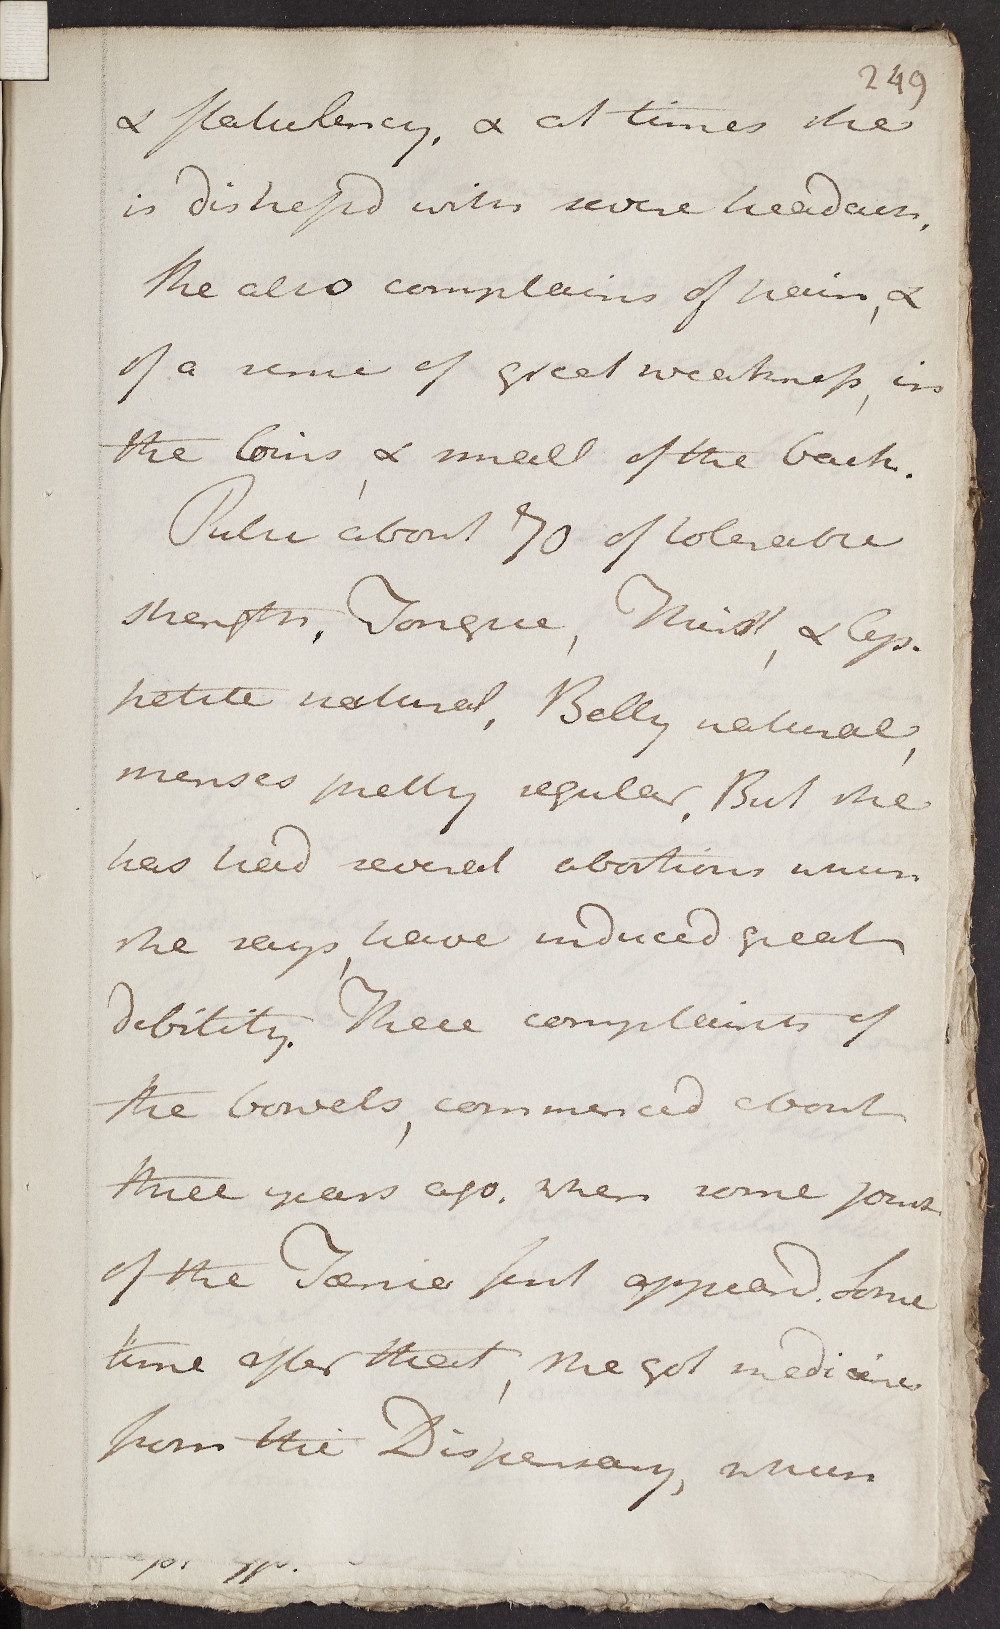 249
& flatulency, & at times she
is distressd with severe headach,
She also complains of pain, &
of a sense of great weakness, in
the loins, & small of the back.
Pulse about 70 of tolerable
strength, Tongue, Thirst, & Ap-
petite natural, Belly natural,
menses pretty regular, But she
has had several abortions which
she says, have induced great
debility. These complaints of
the bowels, commenced about
three years ago, when some joints
of the Tænia first appeard. Some
time after that, she got medicines
from the Dispensary, which